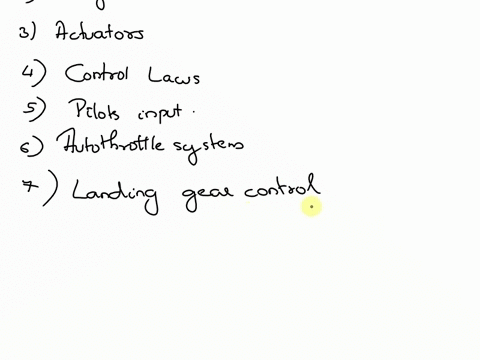 3) Actuators
4) Control Laws
5) Pilots input.
6) Autothrottle systems
7) Landing gear control